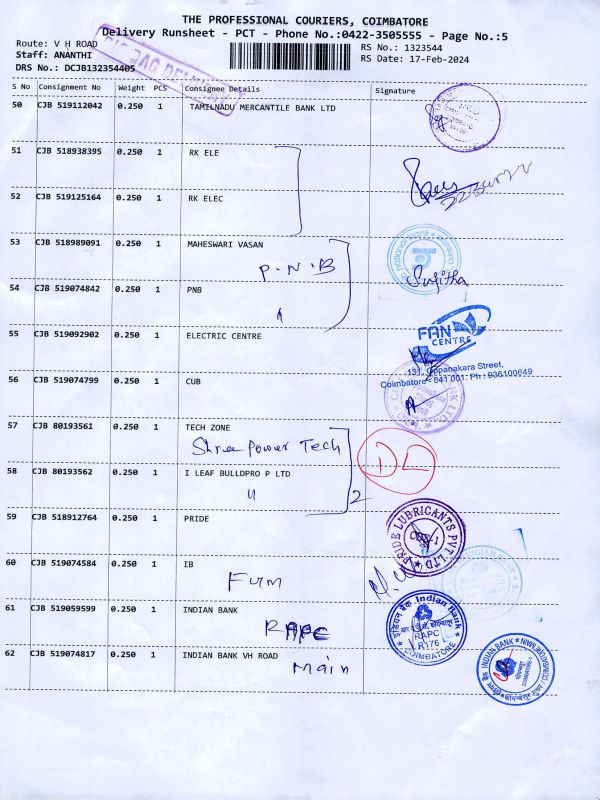 THE PROFESSIONAL COURIERS, COIMBATORE
Delivery Runsheet - PCT - Phone No.:0422-3505555 - Page No.:5
Route: V H ROAD
Staff: ANANTHI
DRS No.: DCJB132354405
RS No.: 1323544
RS Date: 17-Feb-2024
S No Consignment No Weight PCS Consignee Details Signature
50 CJB 519112042 0.250 1 TAMILNADU MERCANTILE BANK LTD
51 CJB 518938395 0.250 1 RK ELE
52 CJB 519125164 0.250 1 RK ELEC
53 CJB 518989091 0.250 1 MAHESWARI VASAN
P.N.B
Sujitha
54 CJB 519074842 0.250 1 PNB
FAN
CENTRE
55 CJB 519092902 0.250 1 ELECTRIC CENTRE
131, Oppanakara Street,
Coimbatore - 641 001. Ph : 936100849
56 CJB 519074799 0.250 1 CUB
57 CJB 80193561 0.250 1 TECH ZONE
Shree Power Tech
58 CJB 80193562 0.250 1 I LEAF BULLDPRO P LTD
2
59 CJB 518912764 0.250 1 PRIDE
PRIDE LUBRICANTS PVT LTD
60 CJB 519074584 0.250 1 IB
INDIAN BANK
61 CJB 519059599 0.250 1 INDIAN BANK
RAPC
इंडियन बैंक Indian Bank
RAPC
R176
COIMBATORE
62 CJB 519074817 0.250 1 INDIAN BANK VH ROAD
Main
INDIAN BANK